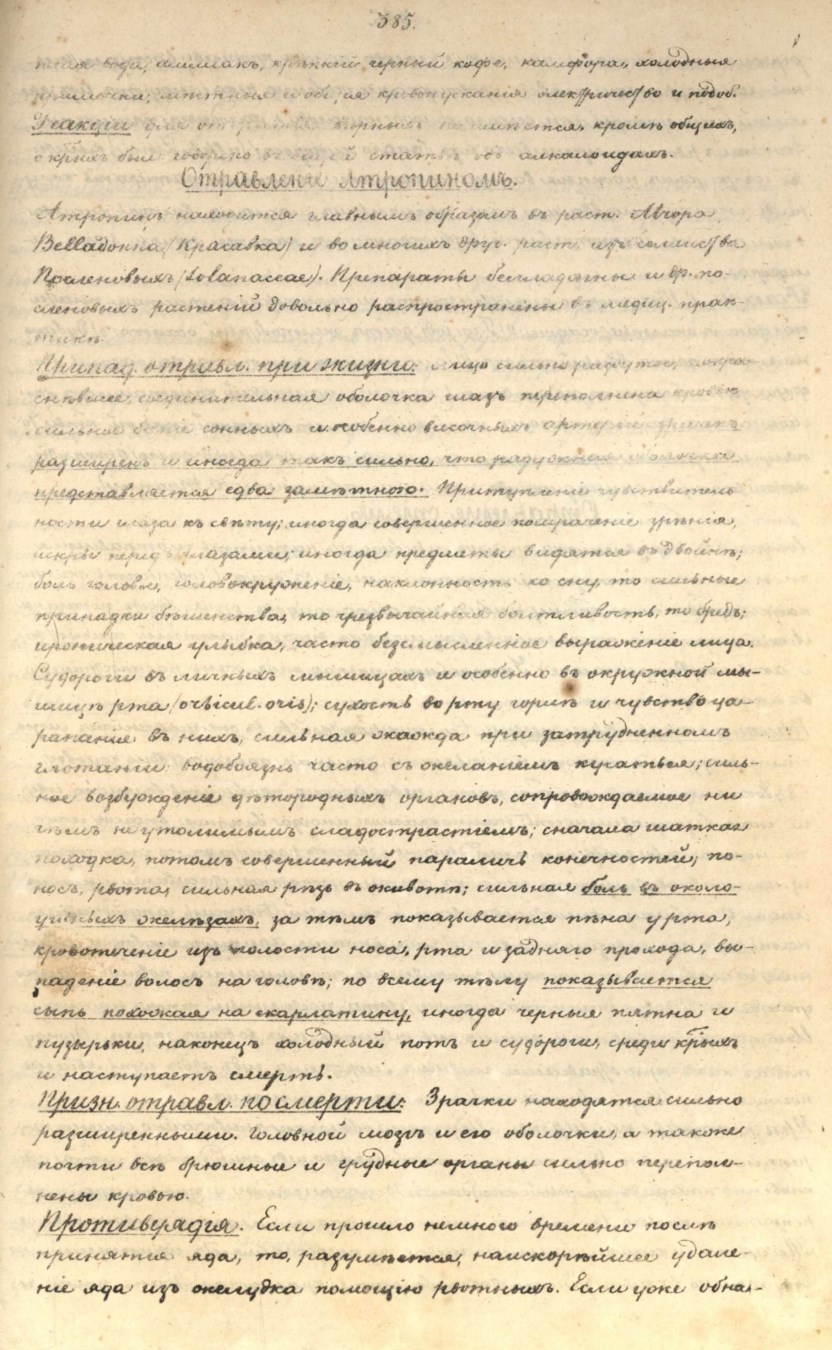 385.
вода, амміакъ, крѣпкій черный кофе, камфора, холодныя
кровопусканія электричество и подоб.
Реакціи для кромѣ общихъ,
о крыхъ было говорено въ общей статьѣ объ алкалоидахъ.
Отравленіе Атропиномъ.
Атропинъ находится главнымъ образомъ въ раст. Atropa
Belladonna (Красавка) и во многихъ друг. раст. изъ семейства
Пасленовыхъ (Solanaceae). Препараты белладонны и др. па-
сленовыхъ растеній довольно распространены въ медиц. прак-
тикѣ.
Припад. отравл. при жизни: лицо сильно раздутое, покра-
снѣвшее, соединительная оболочка глазъ переполнена кровью
сильное біеніе сонныхъ и особенно височныхъ артерій зрачекъ
расширенъ и иногда такъ сильно, что радужная оболочка
представляется едва замѣтною. Притупленіе чувствитель
ности глаза къ свѣту; иногда совершенное помраченіе зрѣнія,
искры передъ глазами; иногда предметы видятся въ двойнѣ;
боль головы, головокруженіе, наклонность ко сну, то сильные
припадки бѣшенства, то чрезвычайная болтливость, то бредъ;
ироническая улыбка, часто безсмысленное выраженіе лица.
Судороги въ личныхъ мышцахъ и особенно въ окружной мы-
шцѣ рта (orbicul. oris); сухость во рту горлѣ и чувство ца-
рапанія въ нихъ, сильная жажда при затрудненномъ
глотаніи водобоязнь часто съ желаніемъ кусаться; силь-
ное возбужденіе дѣтородныхъ органовъ, сопровождаемое ни
чѣмъ неутолимымъ сладострастіемъ; сначала шаткая
походка, потомъ совершенный параличъ конечностей; по-
носъ, рвота, сильная рѣзь въ животѣ; сильная боль въ около-
ушныхъ желѣзахъ, за тѣмъ показывается пѣна у рта,
кровотеченіе изъ полости носа, рта и задняго прохода, вы-
паденіе волосъ на головѣ; по всему тѣлу показывается
сыпь похожая на скарлатину, иногда черныя пятна и
пузырьки, наконецъ холодный потъ и судороги, среди крыхъ
и наступаетъ смерть.
Призн. отравл. по смерти: Зрачки находятся сильно
расширенными. Головной мозгъ и его оболочки, а также
почти всѣ брюшные и грудные органы сильно перепол-
нены кровью.
Противуядія. Если прошло немного времени послѣ
принятія яда, то, разумѣется, наискорѣйшее удале-
ніе яда изъ желудка помощію рвотныхъ. Если уже обна-